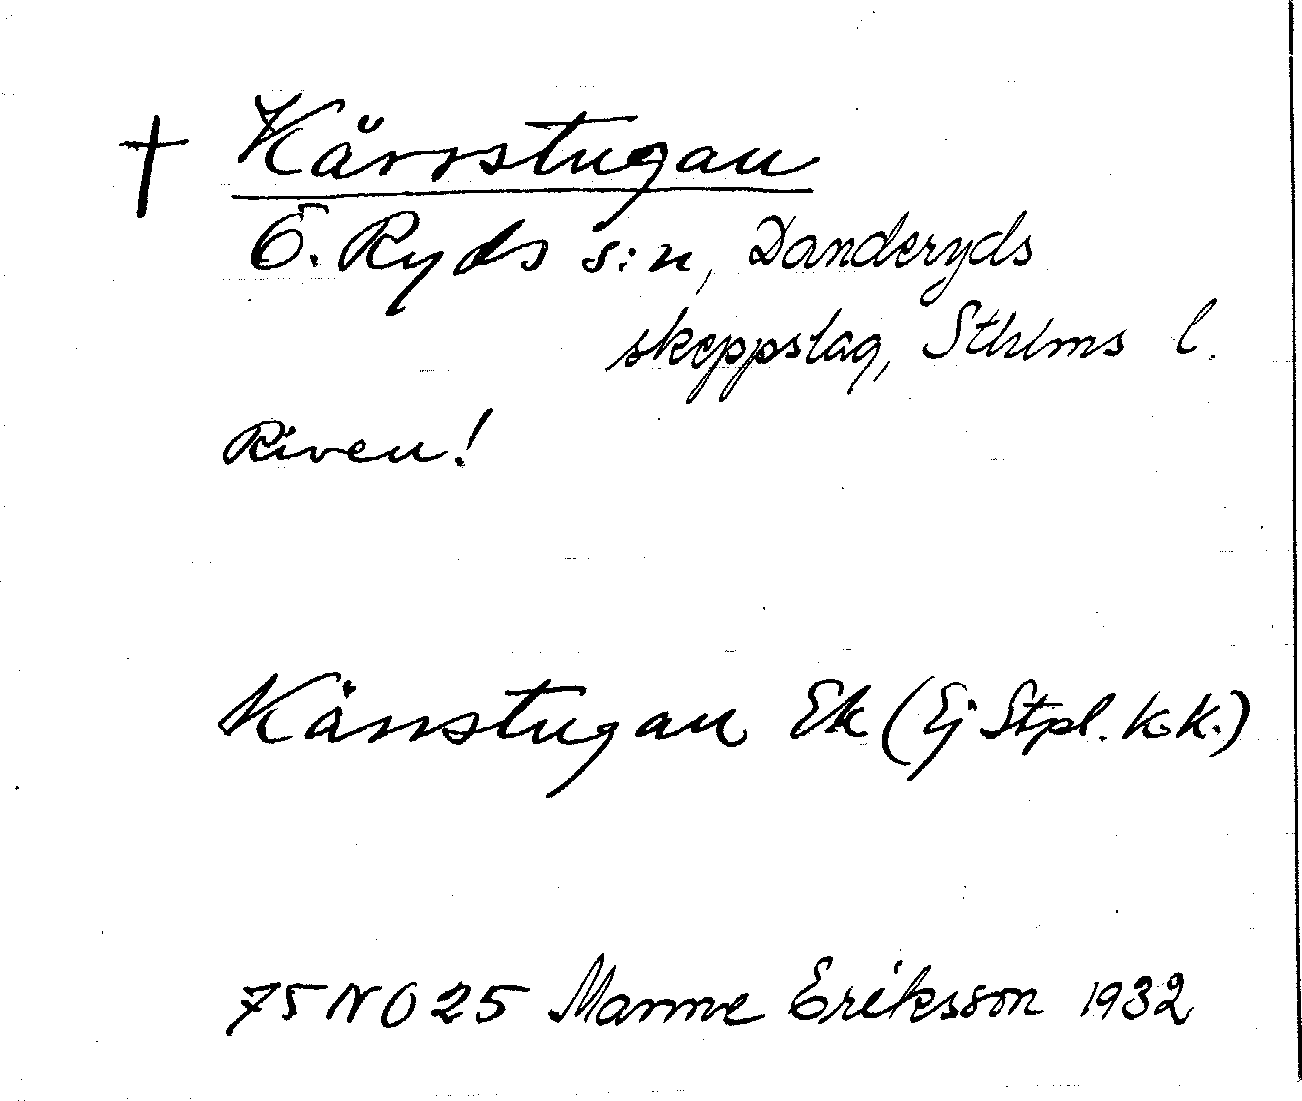 † Kärrstugan
Ö. Ryds s:n, Danderyds
skeppslag, Sthlms l.
Riven!
Kärrstugan Ek (Ej Stpl. k.k.)
75 NO 25 Manne Eriksson 1932